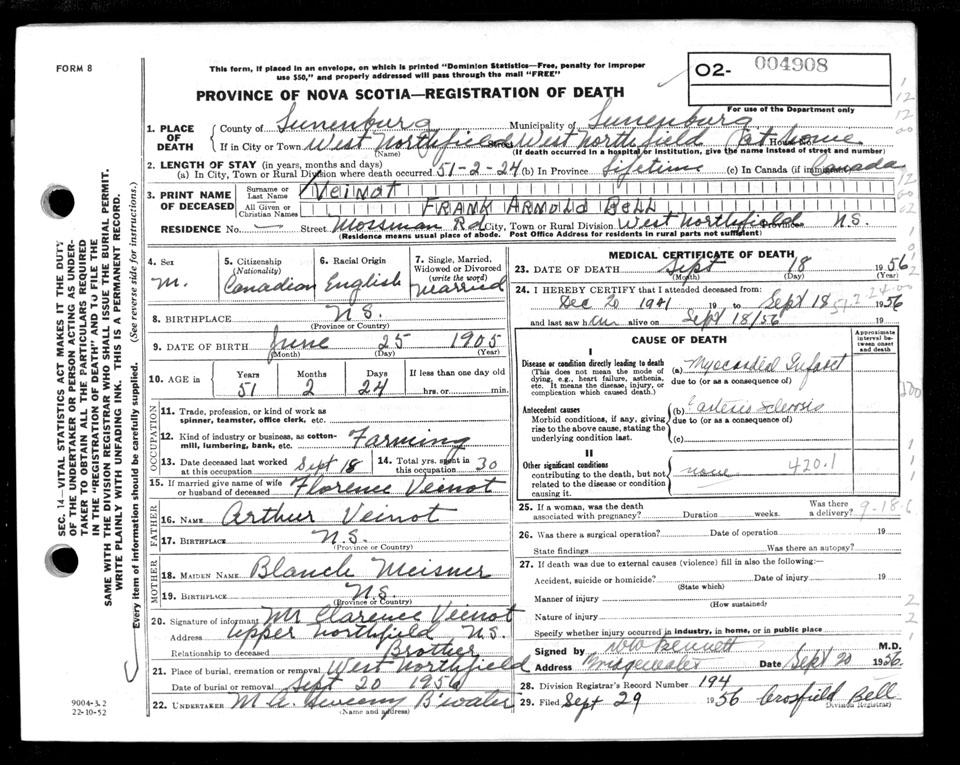 FORM 8
This form, if placed in an envelope, on which is printed "Dominion Statistics—Free, penalty for improper
use $50," and properly addressed will pass through the mail "FREE"
O2- 004908
For use of the Department only
PROVINCE OF NOVA SCOTIA—REGISTRATION OF DEATH
1. PLACE OF DEATH
County of Lunenburg Municipality of Lunenburg
If in City or Town West Northfield Street West Northfield House No. (at home)
(Name) (If death occurred in a hospital or institution, give the name instead of street and number)
2. LENGTH OF STAY (in years, months and days)
(a) In City, Town or Rural Division where death occurred 51-2-24 (b) In Province Lifetime (c) In Canada (if immigrant) Canada
3. PRINT NAME OF DECEASED
Surname or Last Name Veinot
All Given or Christian Names FRANK ARNOLD BELL
RESIDENCE No. Street Mossman Rd City, Town or Rural Division West Northfield Province N.S.
(Residence means usual place of abode. Post Office Address for residents in rural parts not sufficient)
4. Sex M.
5. Citizenship (Nationality) Canadian
6. Racial Origin English
7. Single, Married, Widowed or Divorced (write the word) Married
8. BIRTHPLACE N.S.
(Province or Country)
9. DATE OF BIRTH June 25 1905
(Month) (Day) (Year)
10. AGE in Years 51 Months 2 Days 24 If less than one day old hrs. or min.
OCCUPATION
11. Trade, profession, or kind of work as spinner, teamster, office clerk, etc.
12. Kind of industry or business, as cotton-mill, lumbering, bank, etc. Farming
13. Date deceased last worked at this occupation Sept 18
14. Total yrs. spent in this occupation 30
15. If married give name of wife or husband of deceased Florence Veinot
FATHER
16. NAME Arthur Veinot
17. BIRTHPLACE N.S.
(Province or Country)
MOTHER
18. MAIDEN NAME Blanch Meisner
19. BIRTHPLACE N.S.
(Province or Country)
20. Signature of informant Mr Clarence Veinot
Address Upper Northfield N.S.
Relationship to deceased Brother
21. Place of burial, cremation or removal West Northfield
Date of burial or removal Sept 20 1956
22. UNDERTAKER M.A. Sweeny B'water
(Name and address)
MEDICAL CERTIFICATE OF DEATH
23. DATE OF DEATH Sept 18 1956
(Month) (Day)
24. I HEREBY CERTIFY that I attended deceased from:
Dec 20 1941 19 to Sept 18 1956
and last saw him alive on Sept 18/56 19
51 2 24
CAUSE OF DEATH
Approximate interval between onset and death
I
Disease or condition directly leading to death
(This does not mean the mode of dying, e.g., heart failure, asthenia, etc. It means the disease, injury, or complication which caused death.)
(a) Myocardial Infarct
due to (or as a consequence of)
Antecedent causes
Morbid conditions, if any, giving rise to the above cause, stating the underlying condition last.
(b) arterio sclerosis
due to (or as a consequence of)
(c)
II
Other significant conditions
contributing to the death, but not related to the disease or condition causing it.
none 420.1
25. If a woman, was the death associated with pregnancy? Duration weeks. Was there a delivery?
9-18-6
26. Was there a surgical operation? Date of operation 19
State findings Was there an autopsy?
27. If death was due to external causes (violence) fill in also the following:
Accident, suicide or homicide? Date of injury 19
(State which)
Manner of injury
(How sustained)
Nature of injury
Specify whether injury occurred in industry, in home, or in public place
Signed by WW Bennett M.D.
Address Bridgewater Date Sept 20 1956
28. Division Registrar's Record Number 194
29. Filed Sept 29 1956 Crosfield Bell
(Division Registrar)
SEC. 14—VITAL STATISTICS ACT MAKES IT THE DUTY
OF THE UNDERTAKER OR PERSON ACTING AS UNDER-
TAKER TO OBTAIN ALL THE PARTICULARS REQUIRED
IN THE "REGISTRATION OF DEATH" AND TO FILE THE
SAME WITH THE DIVISION REGISTRAR WHO SHALL ISSUE THE BURIAL PERMIT.
WRITE PLAINLY WITH UNFADING INK. THIS IS A PERMANENT RECORD.
Every item of information should be carefully supplied. (See reverse side for instructions.)
9004-3.2
22-10-52